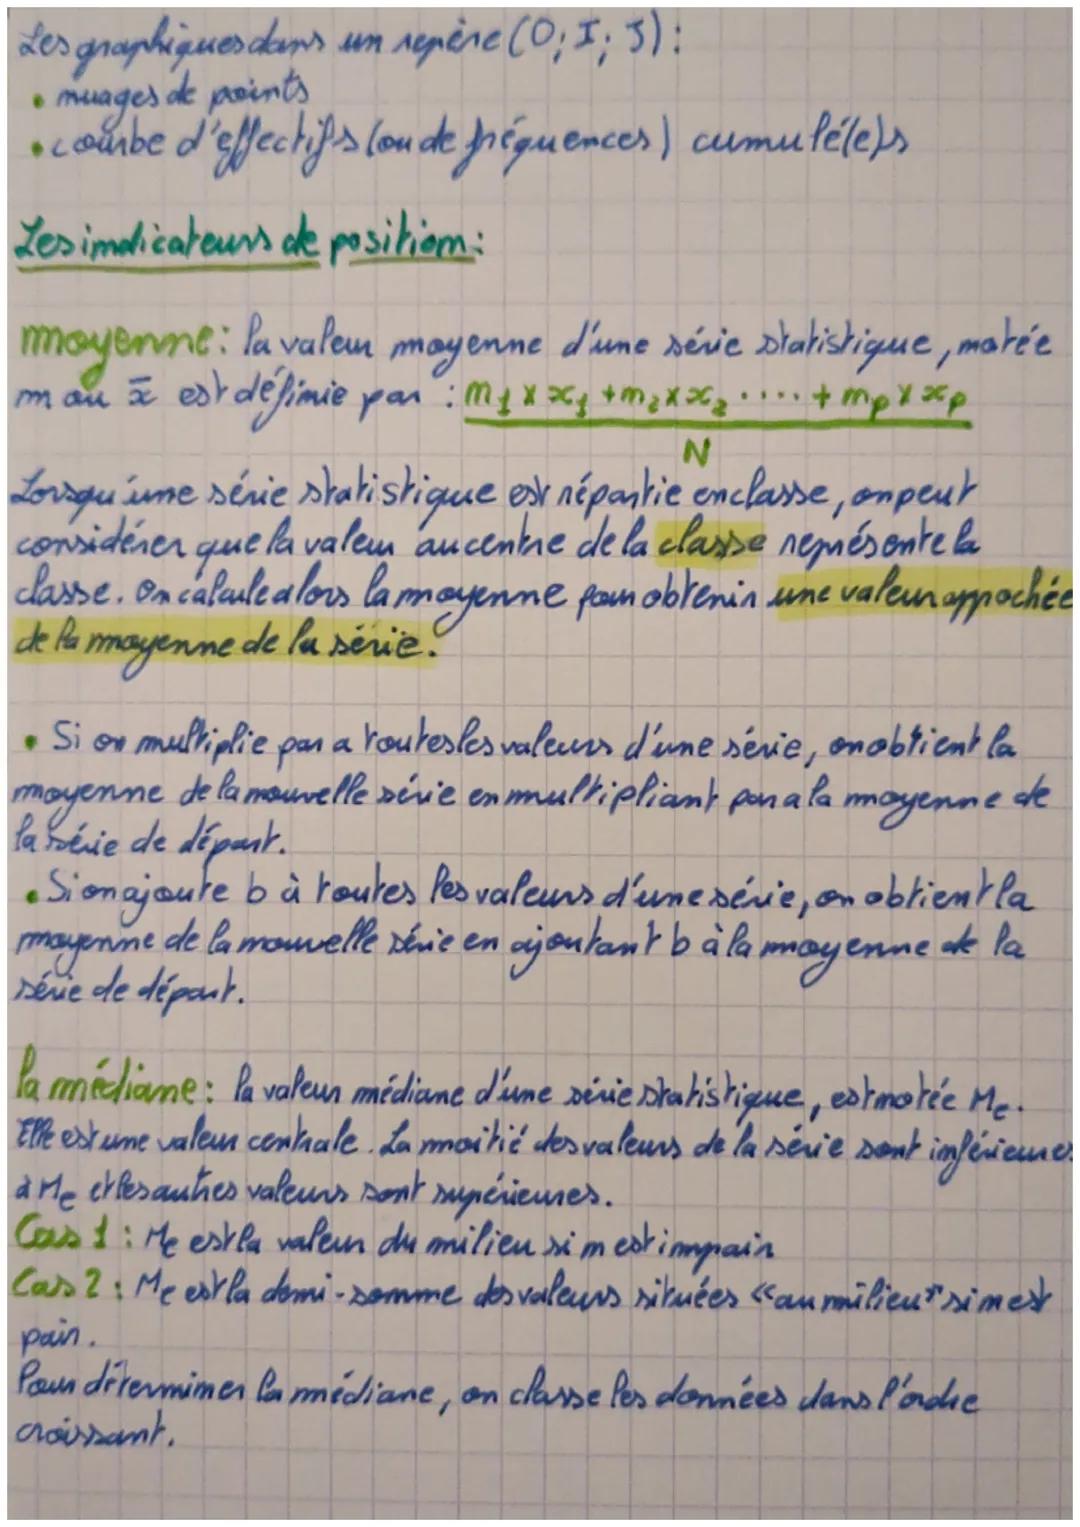 Les graphiques dans un repère (O; I; J) :
• nuages de points
• courbe d'effectifs (ou de fréquences) cumulé(e)s
Les indicateurs de position :
moyenne : la valeur moyenne d'une série statistique, notée
m ou x̄ est définie par : n₁ × x₁ + n₂ × x₂ ..... + nₚ × xₚ
N
Lorsqu'une série statistique est répartie en classe, on peut
considérer que la valeur au centre de la classe représente la
classe. On calcule alors la moyenne pour obtenir une valeur approchée
de la moyenne de la série.
• Si on multiplie par a toutes les valeurs d'une série, on obtient la
moyenne de la nouvelle série en multipliant par a la moyenne de
la série de départ.
• Si on ajoute b à toutes les valeurs d'une série, on obtient la
moyenne de la nouvelle série en ajoutant b à la moyenne de la
série de départ.
la médiane : la valeur médiane d'une série statistique, est notée Me.
Elle est une valeur centrale. La moitié des valeurs de la série sont inférieures
à Me et les autres valeurs sont supérieures.
Cas 1 : Me est la valeur du milieu si n est impair
Cas 2 : Me est la demi-somme des valeurs situées «au milieu" si n est
pair.
Pour déterminer la médiane, on classe les données dans l'ordre
croissant.